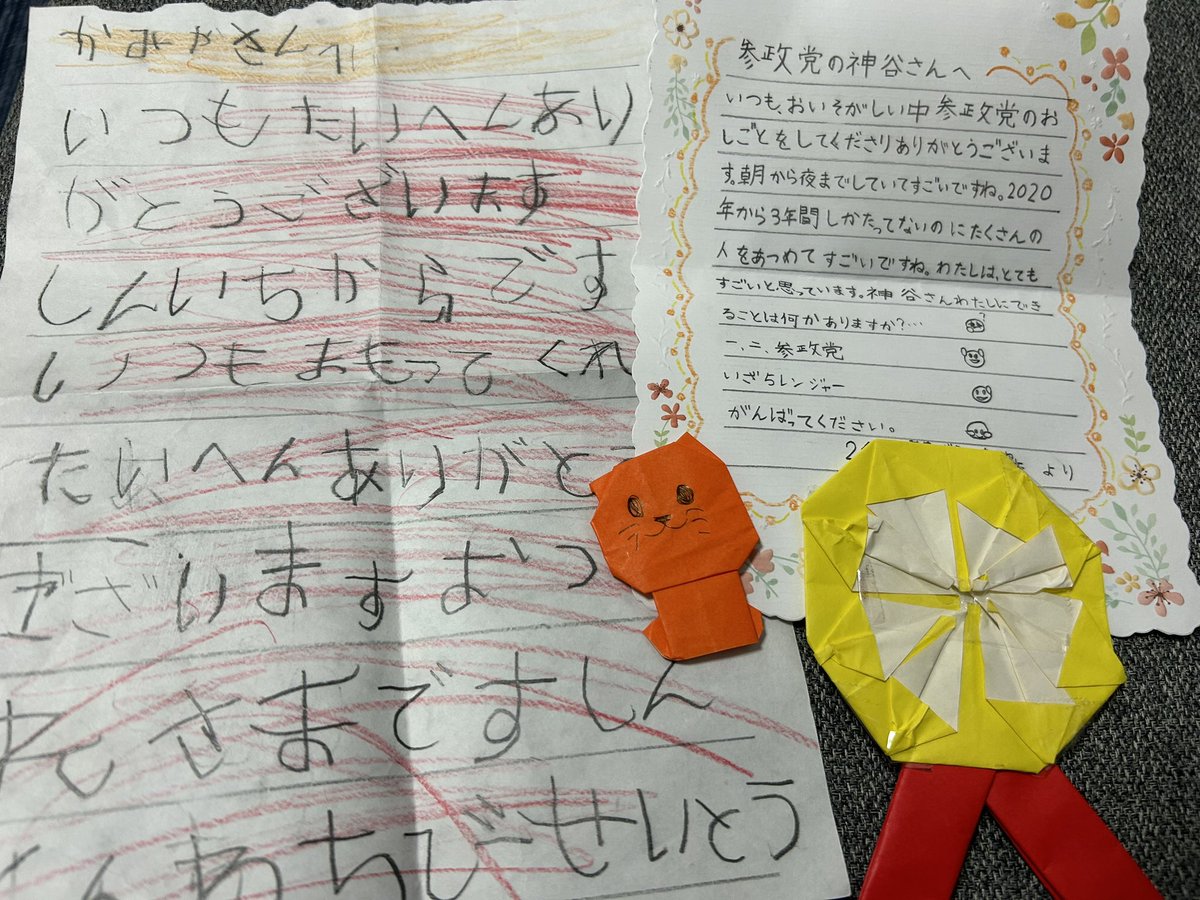 かみやさんへ
いつもたいへんあり
がとうございます
しんいちからです
いつもおもってくれ
たいへんありがと
ございますおつ
さまですしん
あちびーせいとう
参政党の神谷さんへ
いつも、おいそがしい中参政党のお
しごとをしてくださりありがとうございま
す。朝から夜までしていてすごいですね。2020
年から3年間しかたってないのにたくさんの
人をあつめてすごいですね。わたしは、とても
すごいと思っています。神谷さんわたしにでき
ることは何かありますか?…
一、二、参政党
いざ5レンジャー
がんばってください。
より